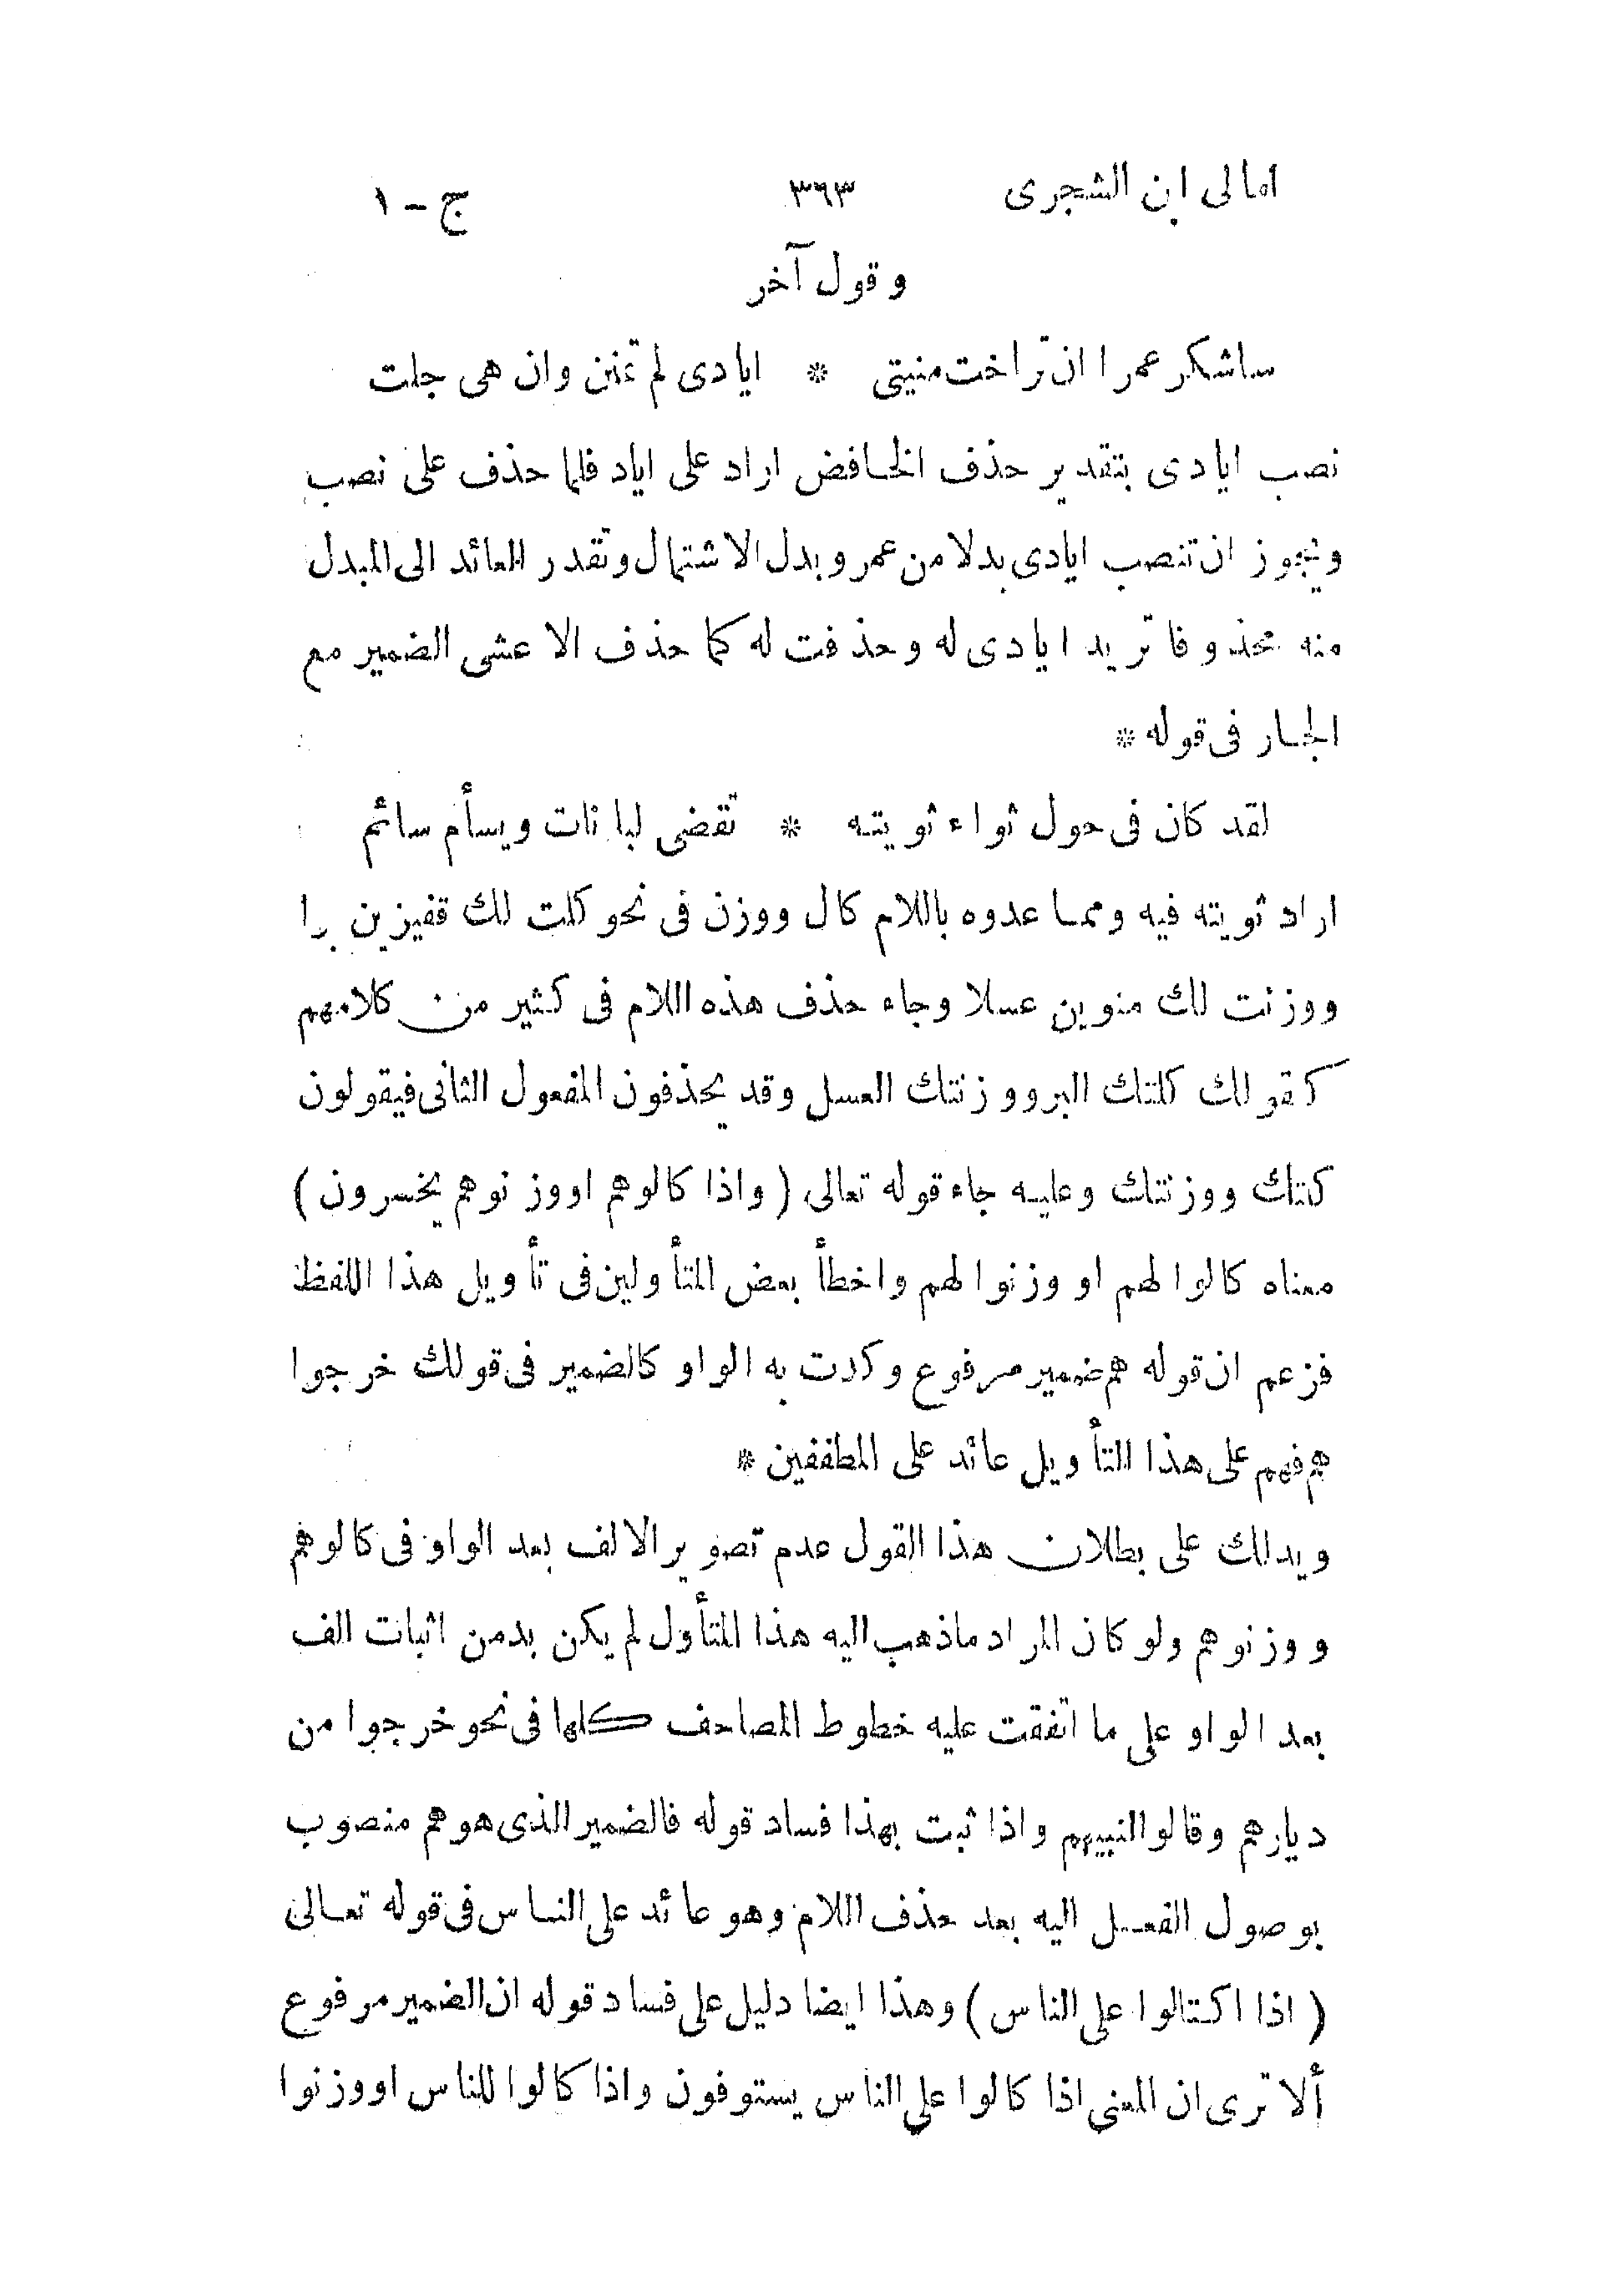 امالى ابن الشجرى ٣٦٣ ج - ١
وقول آخر
ساشكر عمرا ان تراخت منيتى * ايادى لم تمنن وان هى جلت
نصب ايادى بتقدير حذف الخافض اراد على اياد فلما حذف على نصب
ويجوز ان تنصب ايادى بدلا من عمرو بدل الاشتمال وتقدر العائد الى المبدل
منه محذوفا تريد ايادى له وحذفت له كما حذف الاعشى الضمير مع
الجار فى قوله *
لقد كان فى حول ثواء ثويته * تقضى لبانات ويسأم سائم
اراد ثويته فيه ومما عدوه باللام كال ووزن فى نحو كلت لك قفيزين برا
ووزنت لك منوين عسلا وجاء حذف هذه اللام فى كثير من كلامهم
كقولك كلتك البر ووزنتك العسل وقد يحذفون المفعول الثانى فيقولون
كلتك ووزنتك وعليه جاء قوله تعالى (واذا كالوهم اووزنوهم يخسرون)
معناه كالوا لهم او وزنوا لهم واخطأ بعض المتأولين فى تأويل هذا اللفظ
فزعم ان قوله هم ضمير مرفوع وكدت به الواو كالضمير فى قولك خرجوا
هم فهم على هذا التأويل عائد على المطففين *
ويدلك على بطلان هذا القول عدم تصوير الالف بعد الواو فى كالوهم
ووزنوهم ولو كان المراد ماذهب اليه هذا المتأول لم يكن بدمن اثبات الف
بعد الواو على ما اتفقت عليه خطوط المصاحف كلها فى نحو خرجوا من
ديارهم وقالوا لنبيهم واذا ثبت بهذا فساد قوله فالضمير الذى هو هم منصوب
بوصول الفعل اليه بعد حذف اللام وهو عائد على الناس فى قوله تعالى
(اذا اكتالوا على الناس) وهذا ايضا دليل على فساد قوله ان الضمير مرفوع
ألا ترى ان المعنى اذا كالوا على الناس يستوفون واذا كالوا للناس اووزنوا